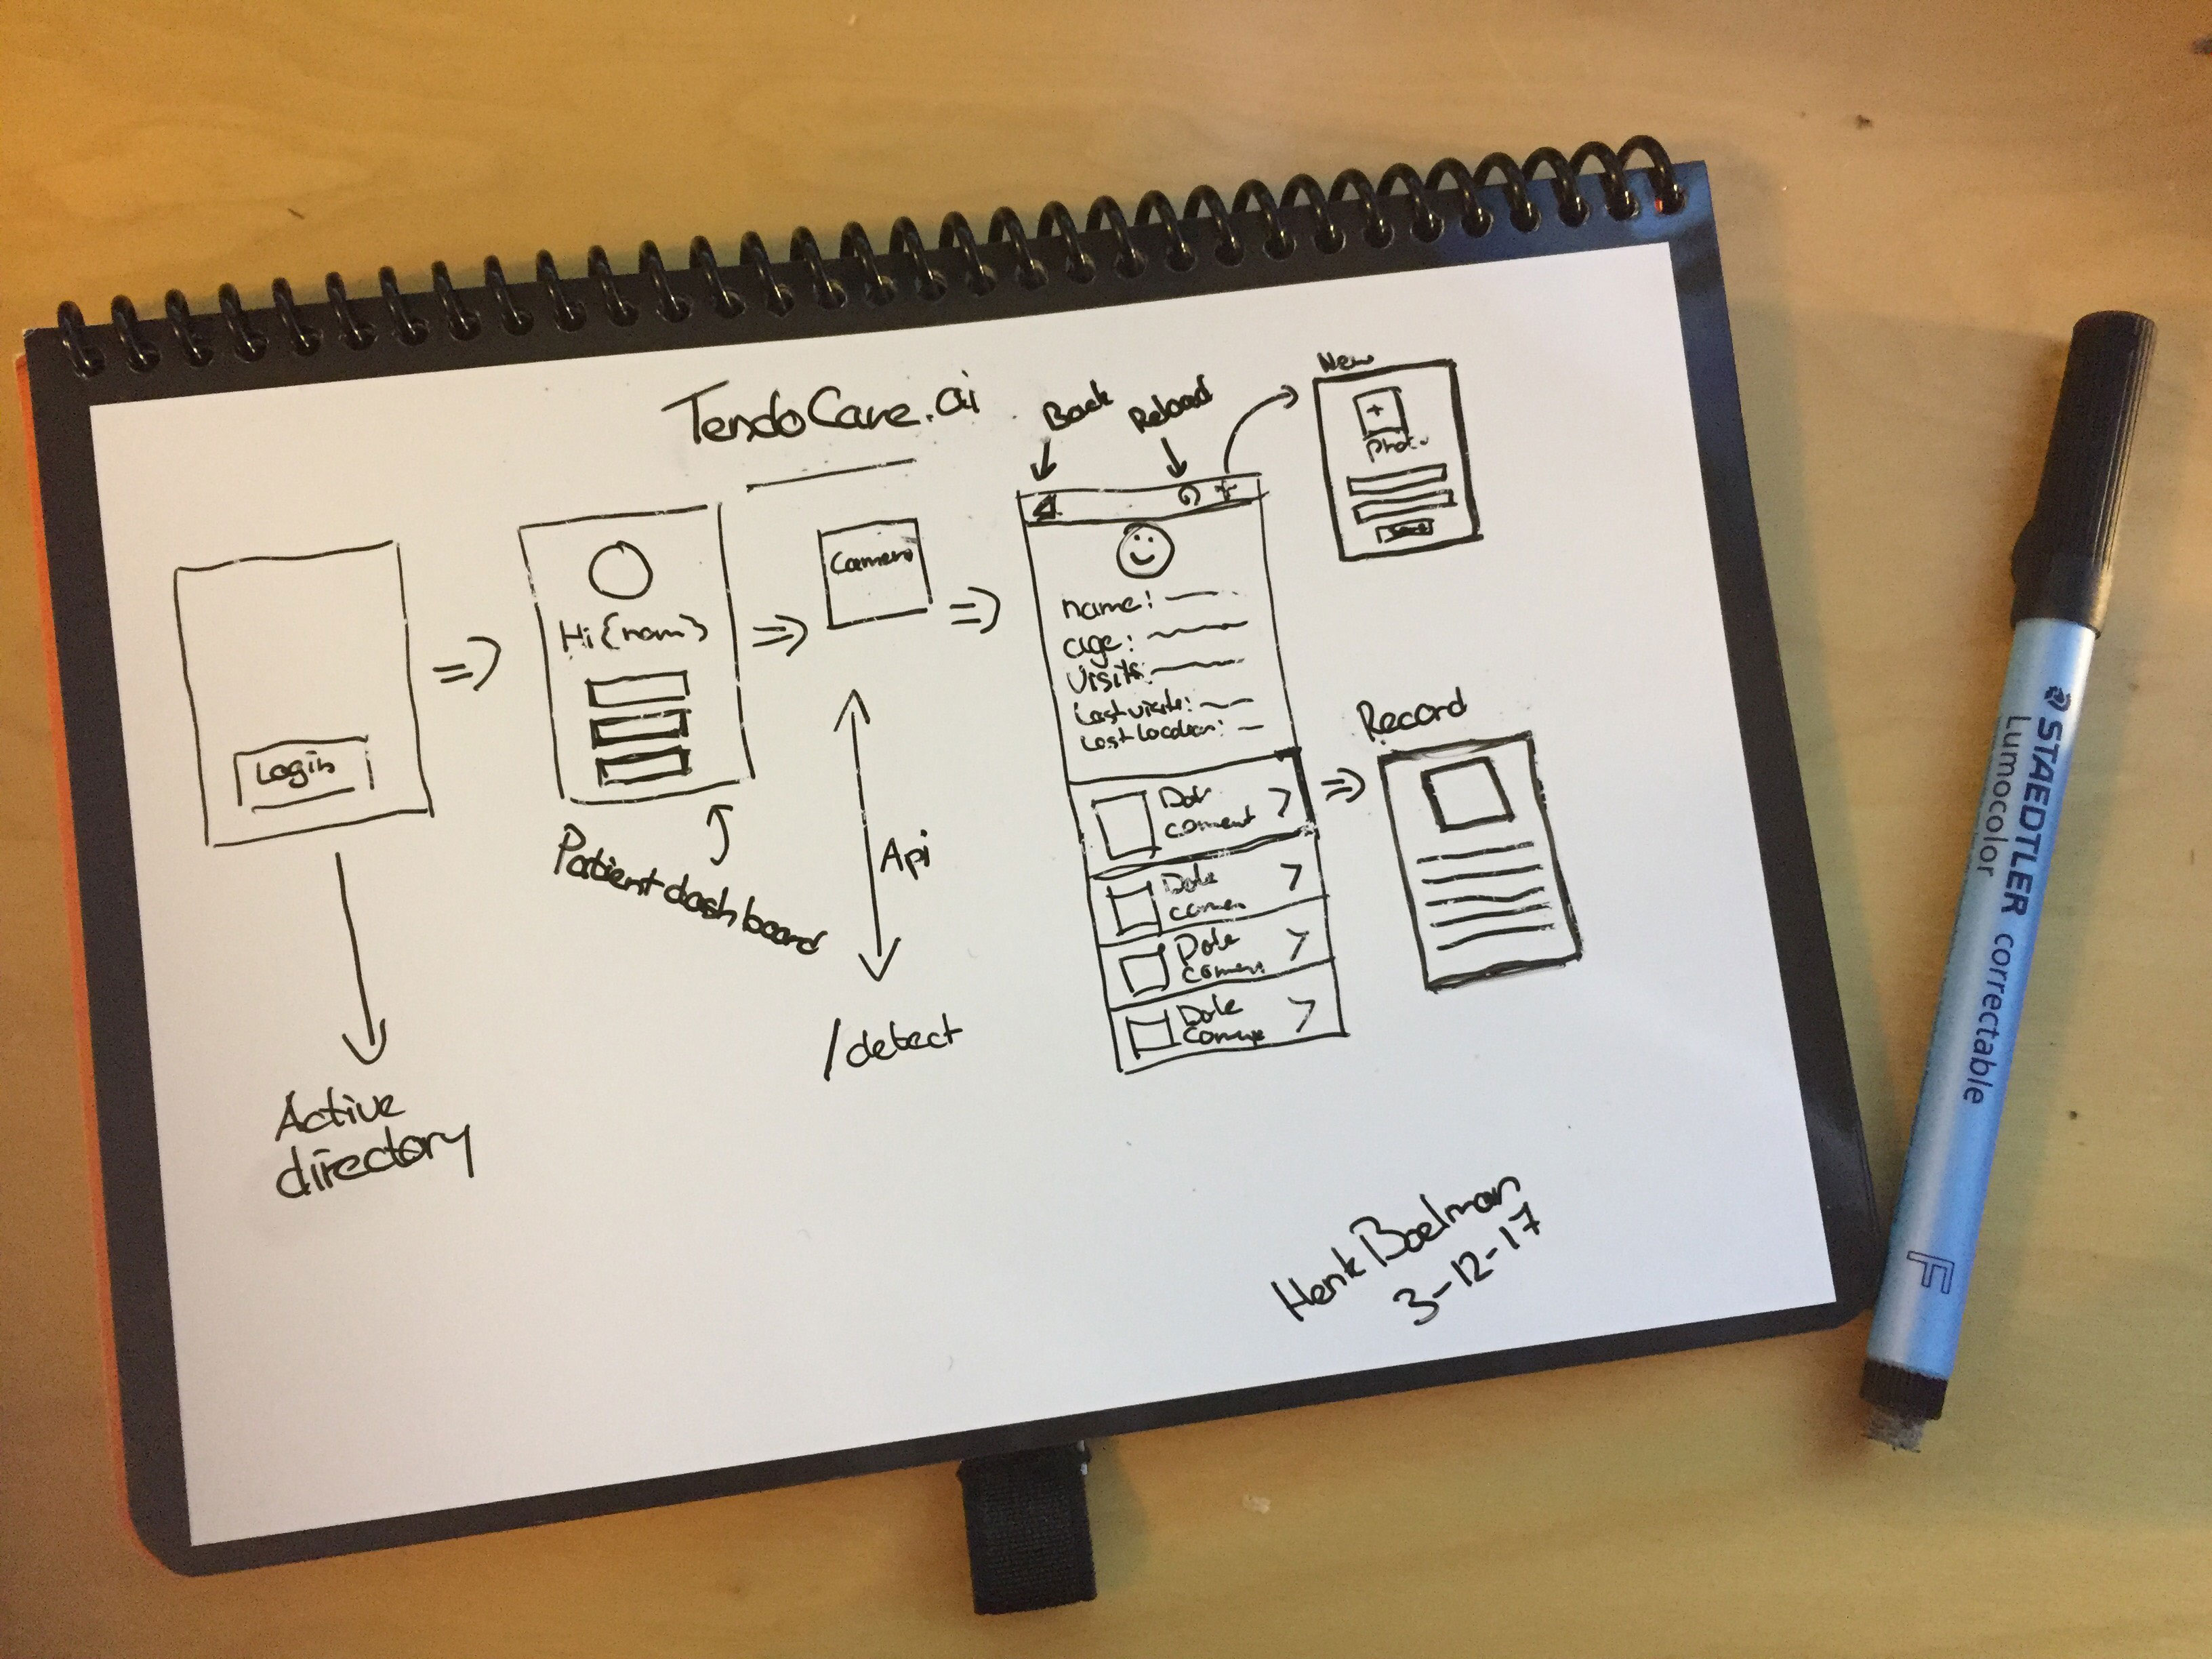 TendoCare.ai
Back
Reload
New
+
Photo
Save
Login
Hi {nam}
Camera
name:
age:
Visits:
Last visite:
Last location:
Date
coment
Date
comen
Date
coment
Date
Record
Patient dashboard
Api
/detect
Active
directory
Henk Boelman
3-12-17
STAEDTLER
Lumocolor correctable
F